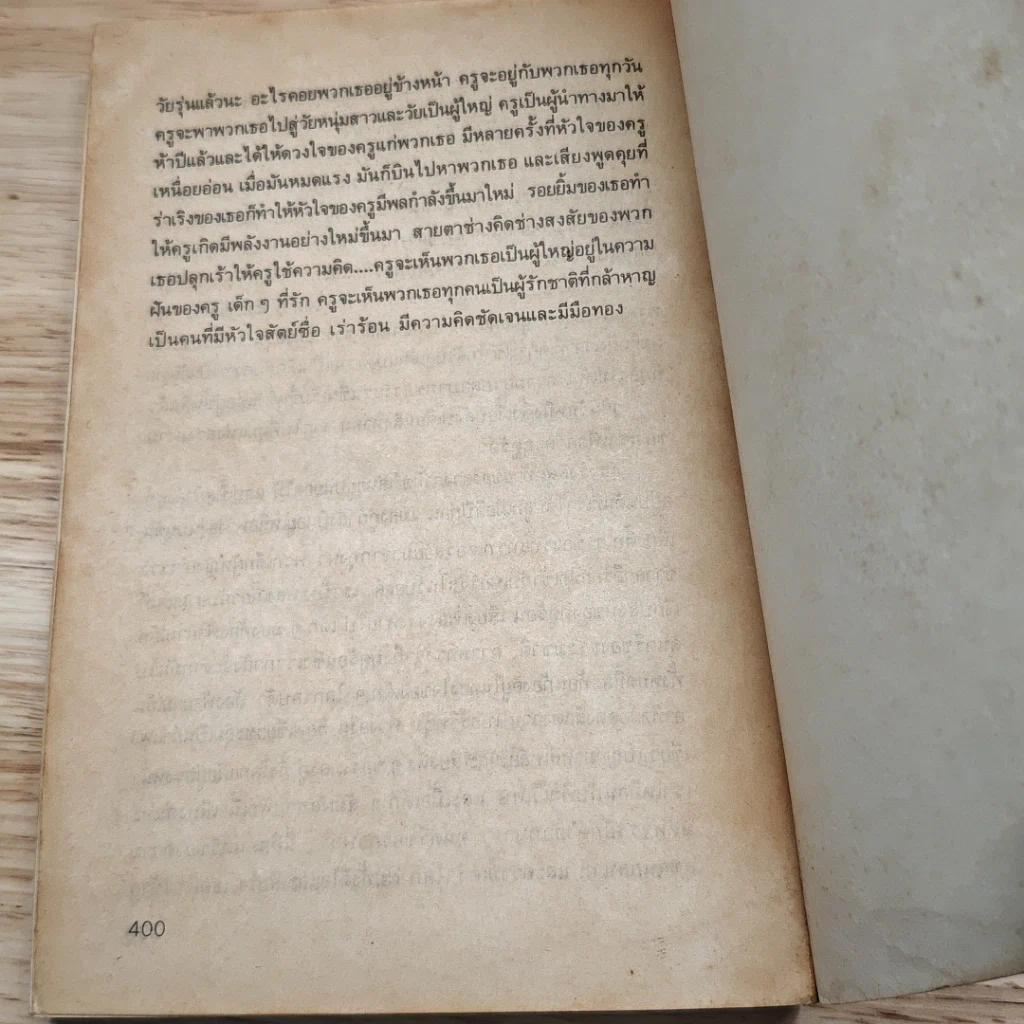 วัยรุ่นแล้วนะ อะไรคอยพวกเธออยู่ข้างหน้า ครูจะอยู่กับพวกเธอทุกวัน
ครูจะพาพวกเธอไปสู่วัยหนุ่มสาวและวัยเป็นผู้ใหญ่ ครูเป็นผู้นำทางมาให้
ห้าปีแล้วและได้ให้ดวงใจของครูแก่พวกเธอ มีหลายครั้งที่หัวใจของครู
เหนื่อยอ่อน เมื่อมันหมดแรง มันก็บินไปหาพวกเธอ และเสียงพูดคุยที่
ร่าเริงของเธอก็ทำให้หัวใจของครูมีพลกำลังขึ้นมาใหม่ รอยยิ้มของเธอทำ
ให้ครูเกิดมีพลังงานอย่างใหม่ขึ้นมา สายตาช่างคิดช่างสงสัยของพวก
เธอปลุกเร้าให้ครูใช้ความคิด....ครูจะเห็นพวกเธอเป็นผู้ใหญ่อยู่ในความ
ฝันของครู เด็ก ๆ ที่รัก ครูจะเห็นพวกเธอทุกคนเป็นผู้รักชาติที่กล้าหาญ
เป็นคนที่มีหัวใจสัตย์ซื่อ เร่าร้อน มีความคิดชัดเจนและมีมือทอง
400